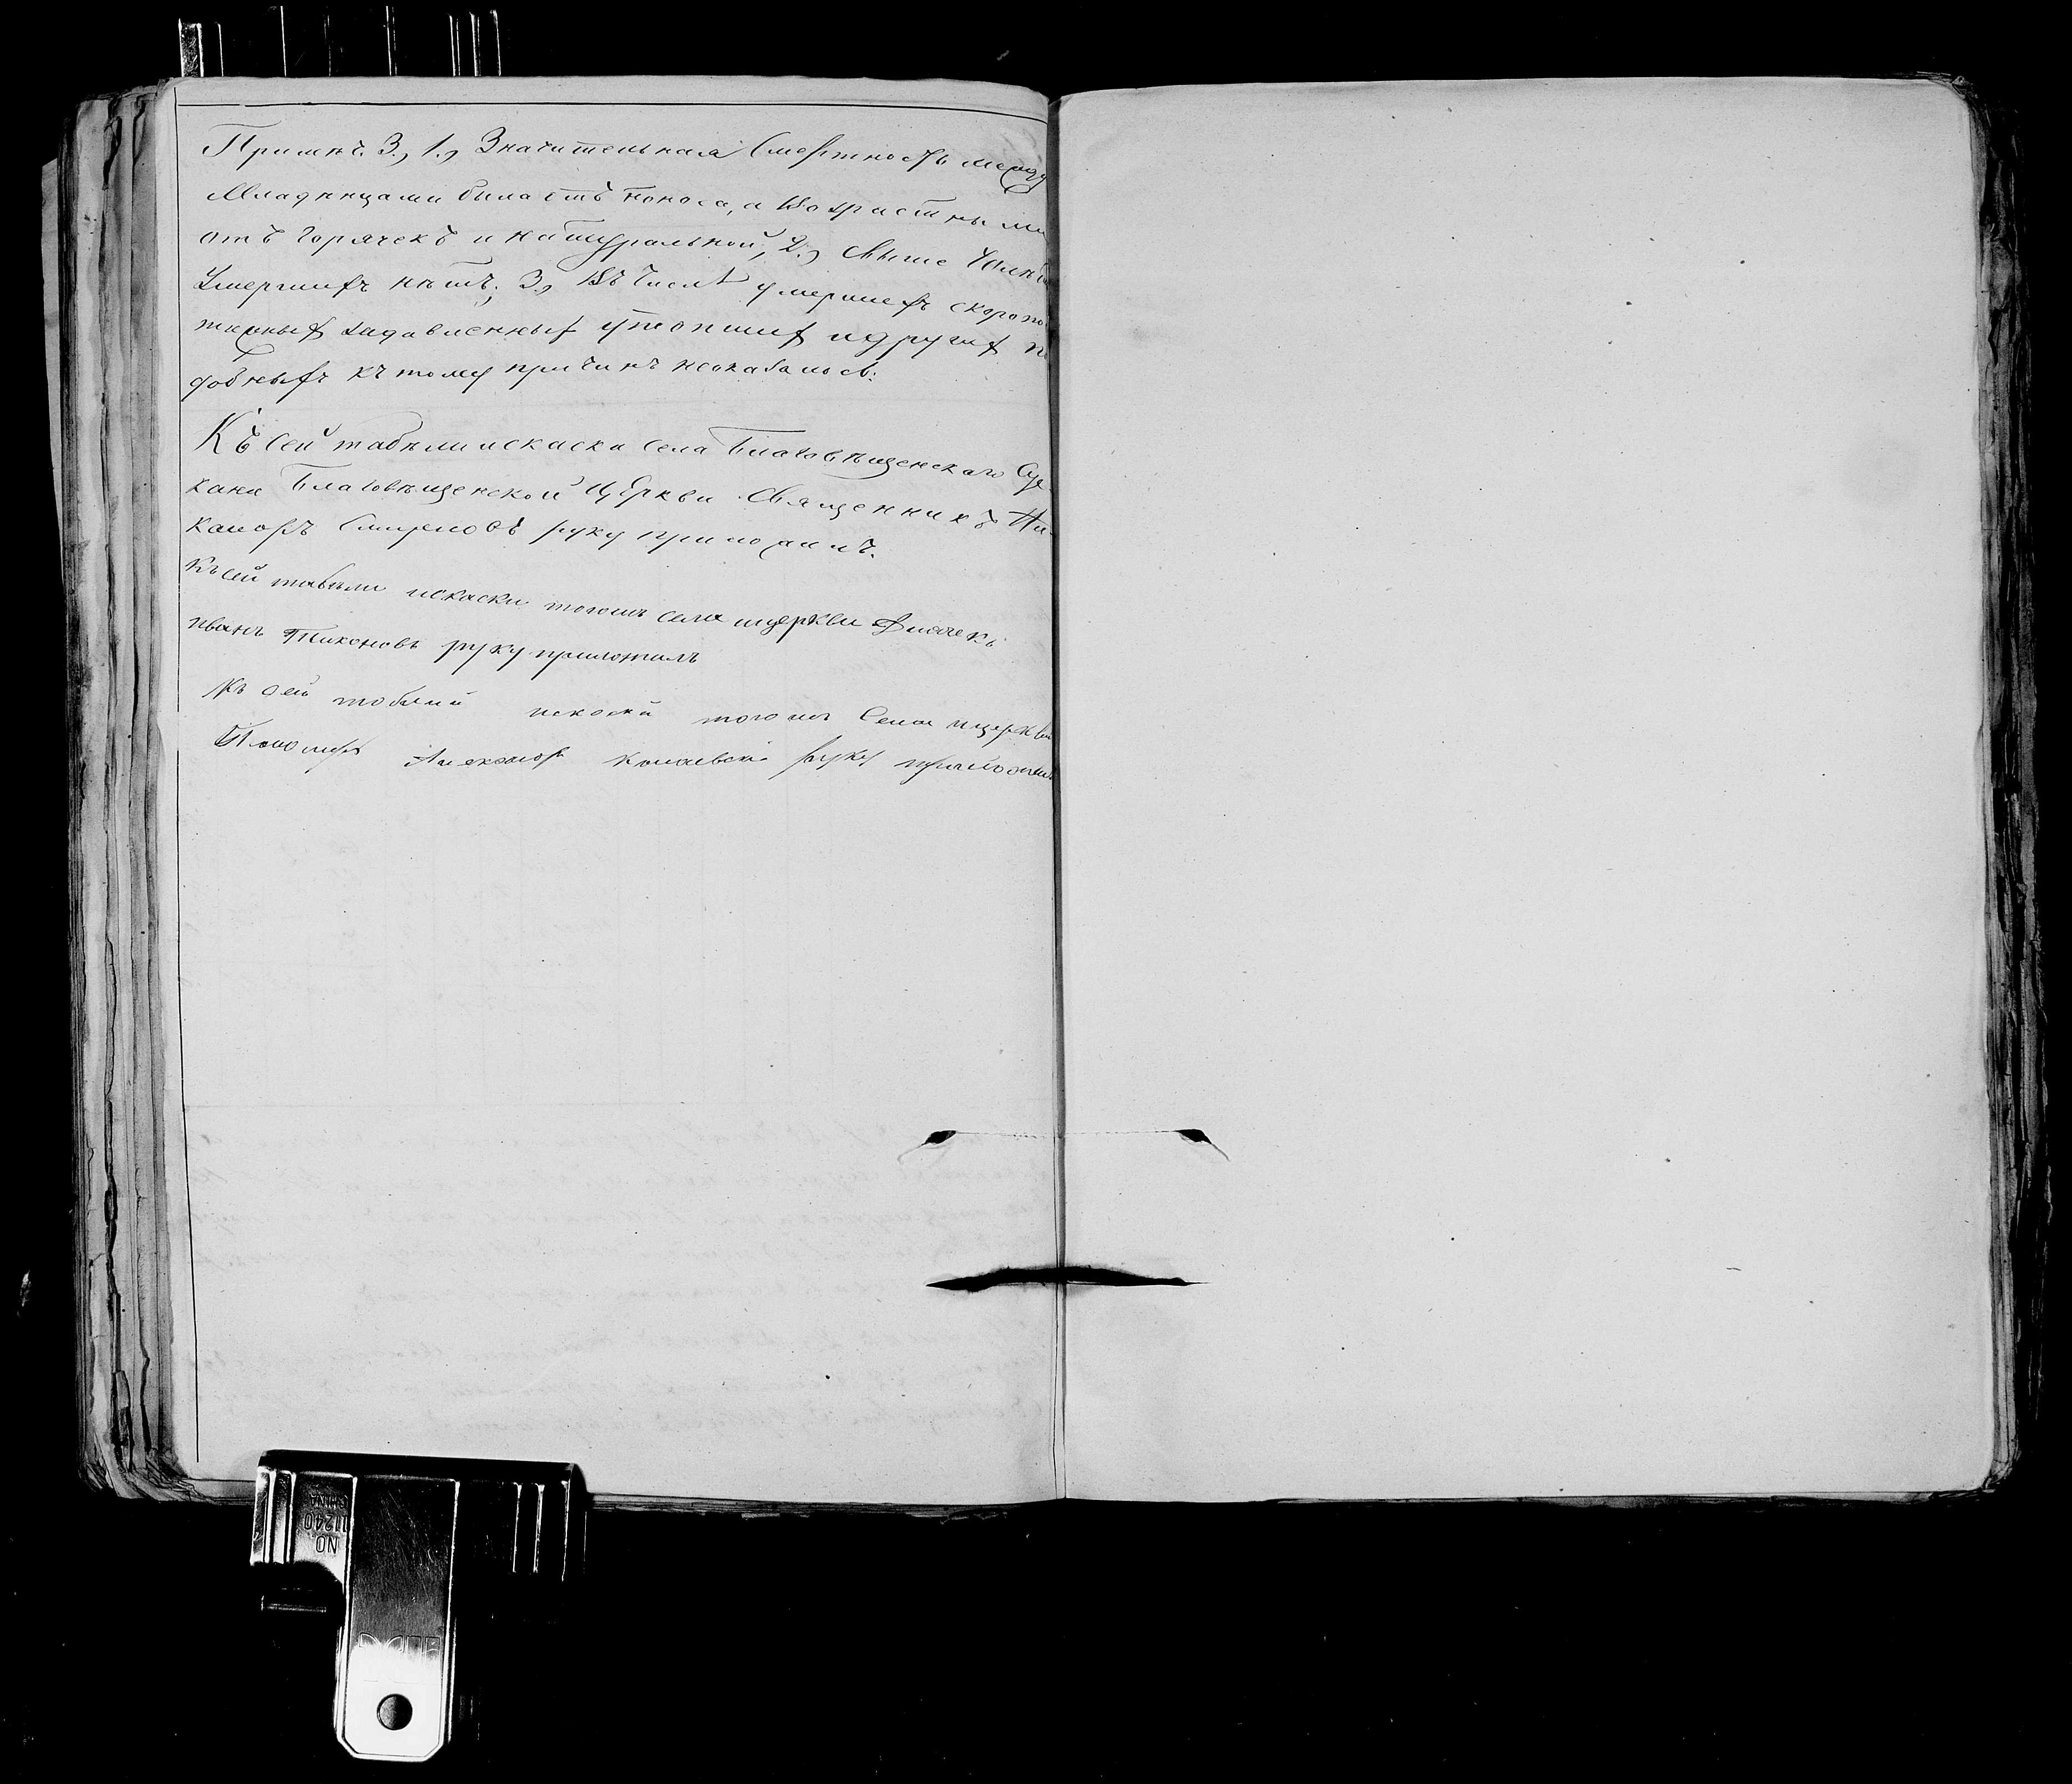 Примѣч. 3., 1., Значительная Смертность между
Младенцами была отъ поноса, а Возрастными
отъ горячекъ и натуральной; 2., Свыше 100 лѣтъ
Умершихъ нѣтъ; 3., Въ Числѣ умершехъ скоропо
тижныхъ задавленныхъ утопшихъ и другихъ по
добныхъ къ тому причинъ неоказалось.
Къ сей табѣли искаски села Благовѣщенскаго Су
кана Благовѣщенской Церкви Священникъ Ни
каноръ Смирновъ руку приложилъ.
Къ сей табѣли искаски тогожъ села ицеркви Дьячекъ
иванъ Тихоновъ руку приложилъ
Къ сей табѣли искаски тогожъ Села ицеркви
Пономарь Александръ руку приложилъ
NO
11240
CHINA